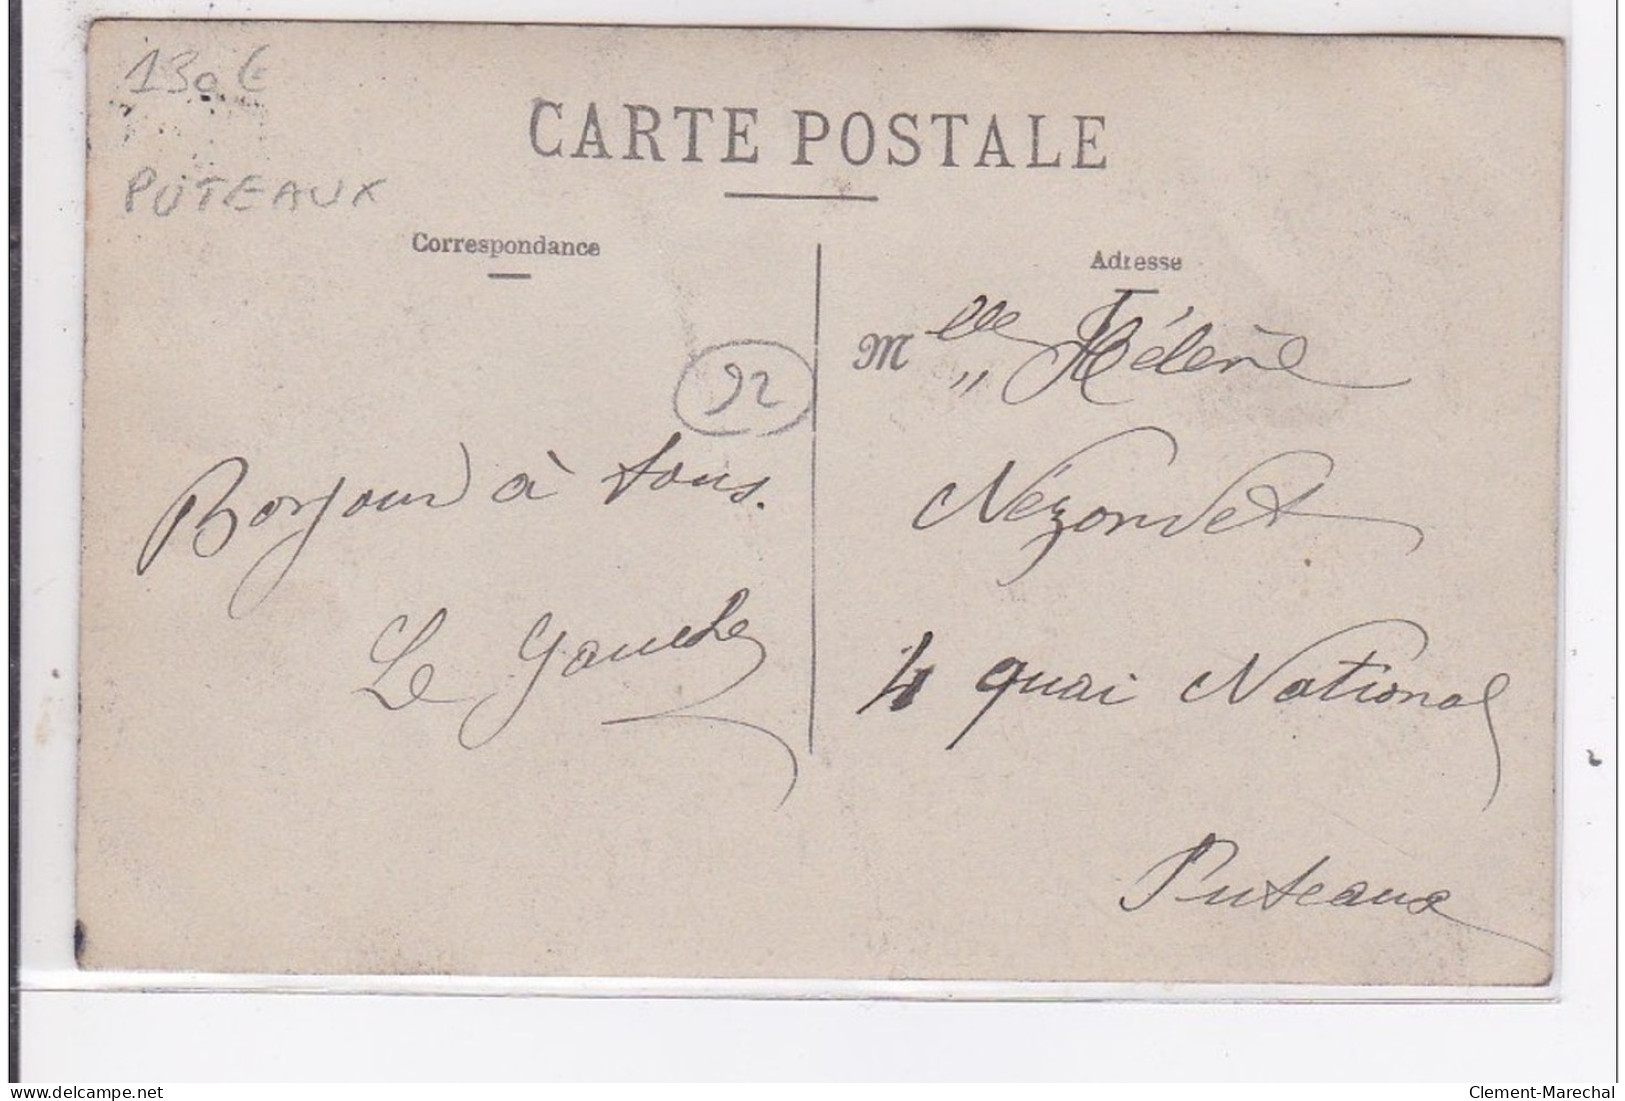 130€
PUTEAUX
CARTE POSTALE
Correspondance
Adresse
92
Bonjour à tous.
Le Gauche
Mlle Hélène
Nézondet
4 quai National
Puteaux
delcampe.net
Clement-Marechal